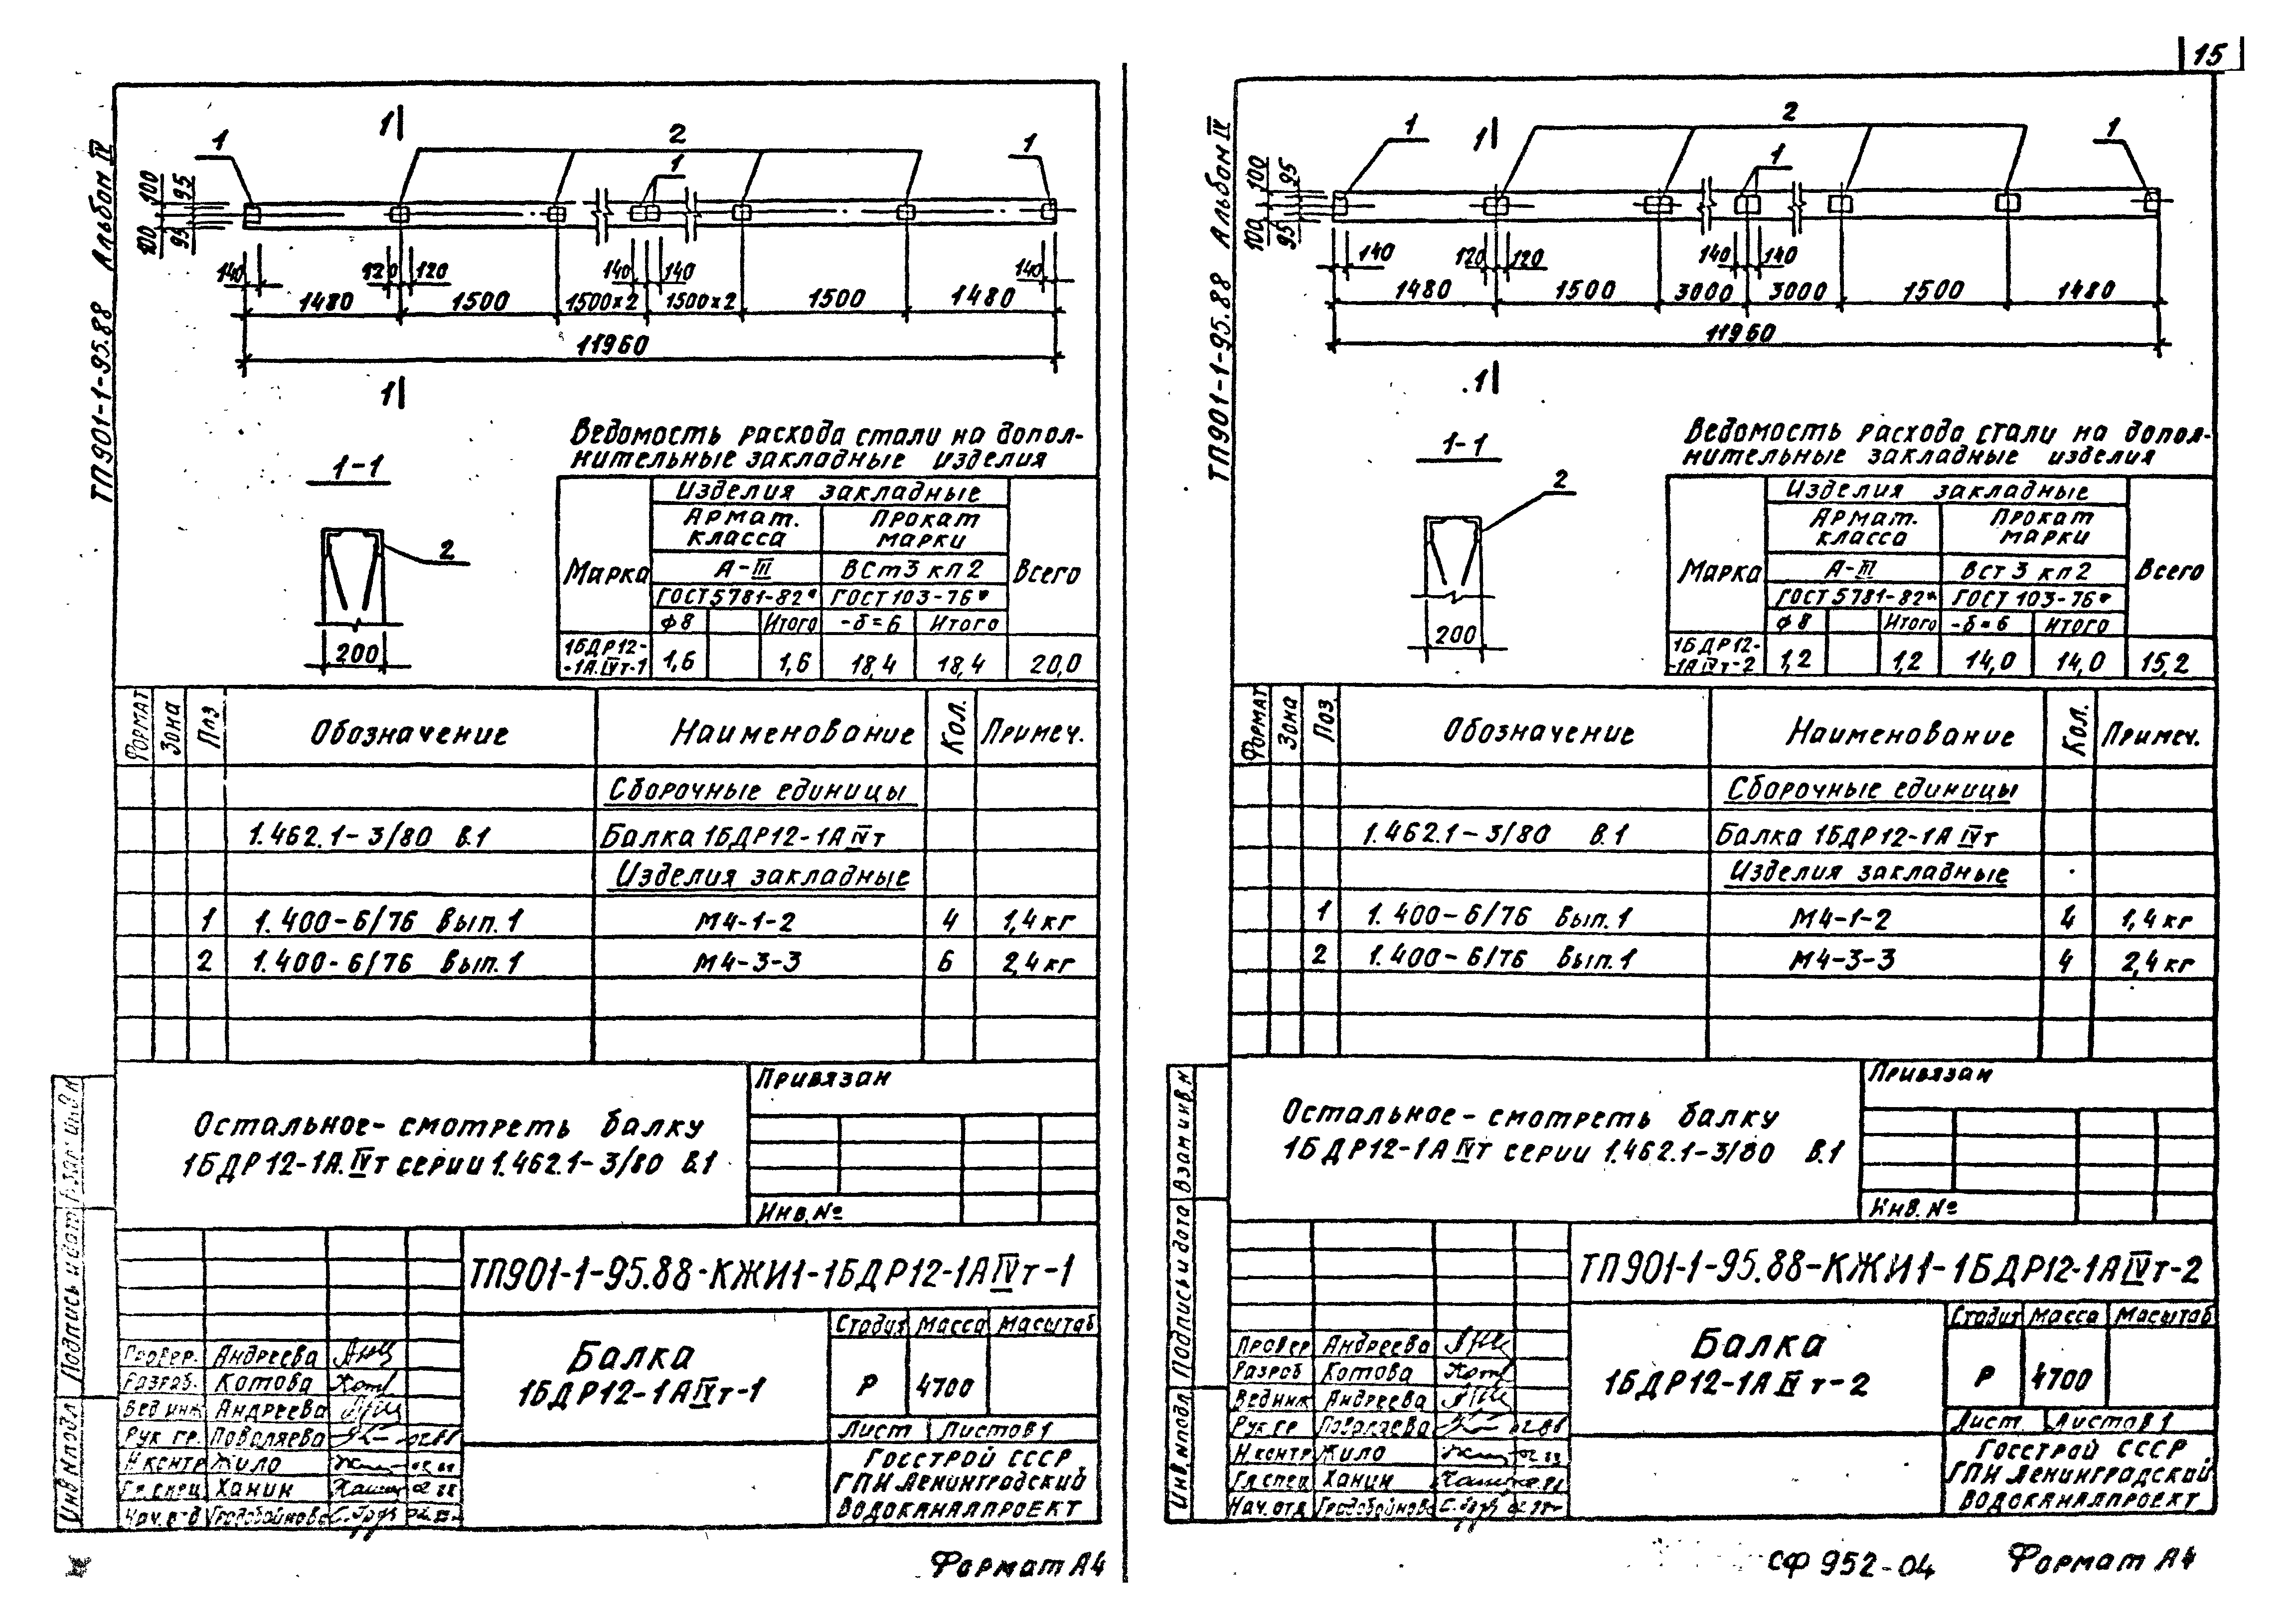 15
ТП901-1-95.88 Альбом IV
1
2
1
1
1
100
95
100
95
140
120
120
140
140
140
1480
1500
1500x2
1500x2
1500
1480
11960
1
1-1
2
200
Ведомость расхода стали на допол-
нительные закладные изделия
Марка
Изделия закладные
Всего
Армат. класса
Прокат марки
А-III
ВСт3 кп2
ГОСТ5781-82*
ГОСТ103-76*
ф8
Итого
-δ=6
Итого
1БДР12-
-1А.IVт-1
1,6
1,6
18,4
18,4
20,0
Формат
Зона
Поз
Обозначение
Наименование
Кол.
Примеч.
Сборочные единицы
1.462.1-3/80 В.1
Балка 1БДР12-1АIVт
Изделия закладные
1
1.400-6/76 Вып.1
М4-1-2
4
1,4кг
2
1.400-6/76 Вып.1
М4-3-3
6
2,4кг
Остальное- смотреть балку
1БДР12-1А.IVт серии 1.462.1-3/80 В.1
Привязан
Инв.№
ТП901-1-95.88-КЖИ1-1БДР12-1АIVт-1
Балка
1БДР12-1АIVт-1
Стадия
Масса
Масштаб
Р
4700
Лист
Листов 1
Госстрой СССР
ГПИ Ленинградский
Водоканалпроект
Провер.
Андреева
Разраб.
Котова
Вед инж
Андреева
Рук гр.
Поваляева
02.88
Н контр
Жило
Гл.спец
Ханин
02 88
Нач.отд
Подпись и дата
Инв №подл
Формат А4
ТП901-1-95.88 Альбом IV
1
1
2
1
1
100
95
100
95
140
120
120
140
140
1480
1500
3000
3000
1500
1480
11960
1
1-1
2
200
Ведомость расхода стали на допол-
нительные закладные изделия
Марка
Изделия закладные
Всего
Армат. класса
Прокат марки
А-III
Вст3 кп2
ГОСТ5781-82*
ГОСТ 103-76*
ф8
Итого
-δ=6
Итого
1БДР12-
-1АIVт-2
1,2
1,2
14,0
14,0
15,2
Формат
Зона
Поз.
Обозначение
Наименование
Кол.
Примеч.
Сборочные единицы
1.462.1-3/80 В.1
Балка 1БДР12-1АIVт
Изделия закладные
1
1.400-6/76 Вып.1
М4-1-2
4
1,4кг
2
1.400-6/76 Вып.1
М4-3-3
4
2,4кг
Остальное- смотреть балку
1БДР12-1АIVт серии 1.462.1-3/80 В.1
Привязан
Инв. №
ТП901-1-95.88-КЖИ1-1БДР12-1АIVт-2
Балка
1БДР12-1АIVт-2
Стадия
Масса
Масштаб
Р
4700
Лист
Листов 1
Госстрой СССР
ГПИ Ленинградский
Водоканалпроект
Провер
Андреева
Разраб
Котова
Вед инж
Андреева
Рук гр
Поваляева
02.88
Н.контр
Жило
Гл.спец
Ханин
Нач.отд
Взам инв.н
Подпись и дата
Инв.№подл
СФ 952-04
Формат А4